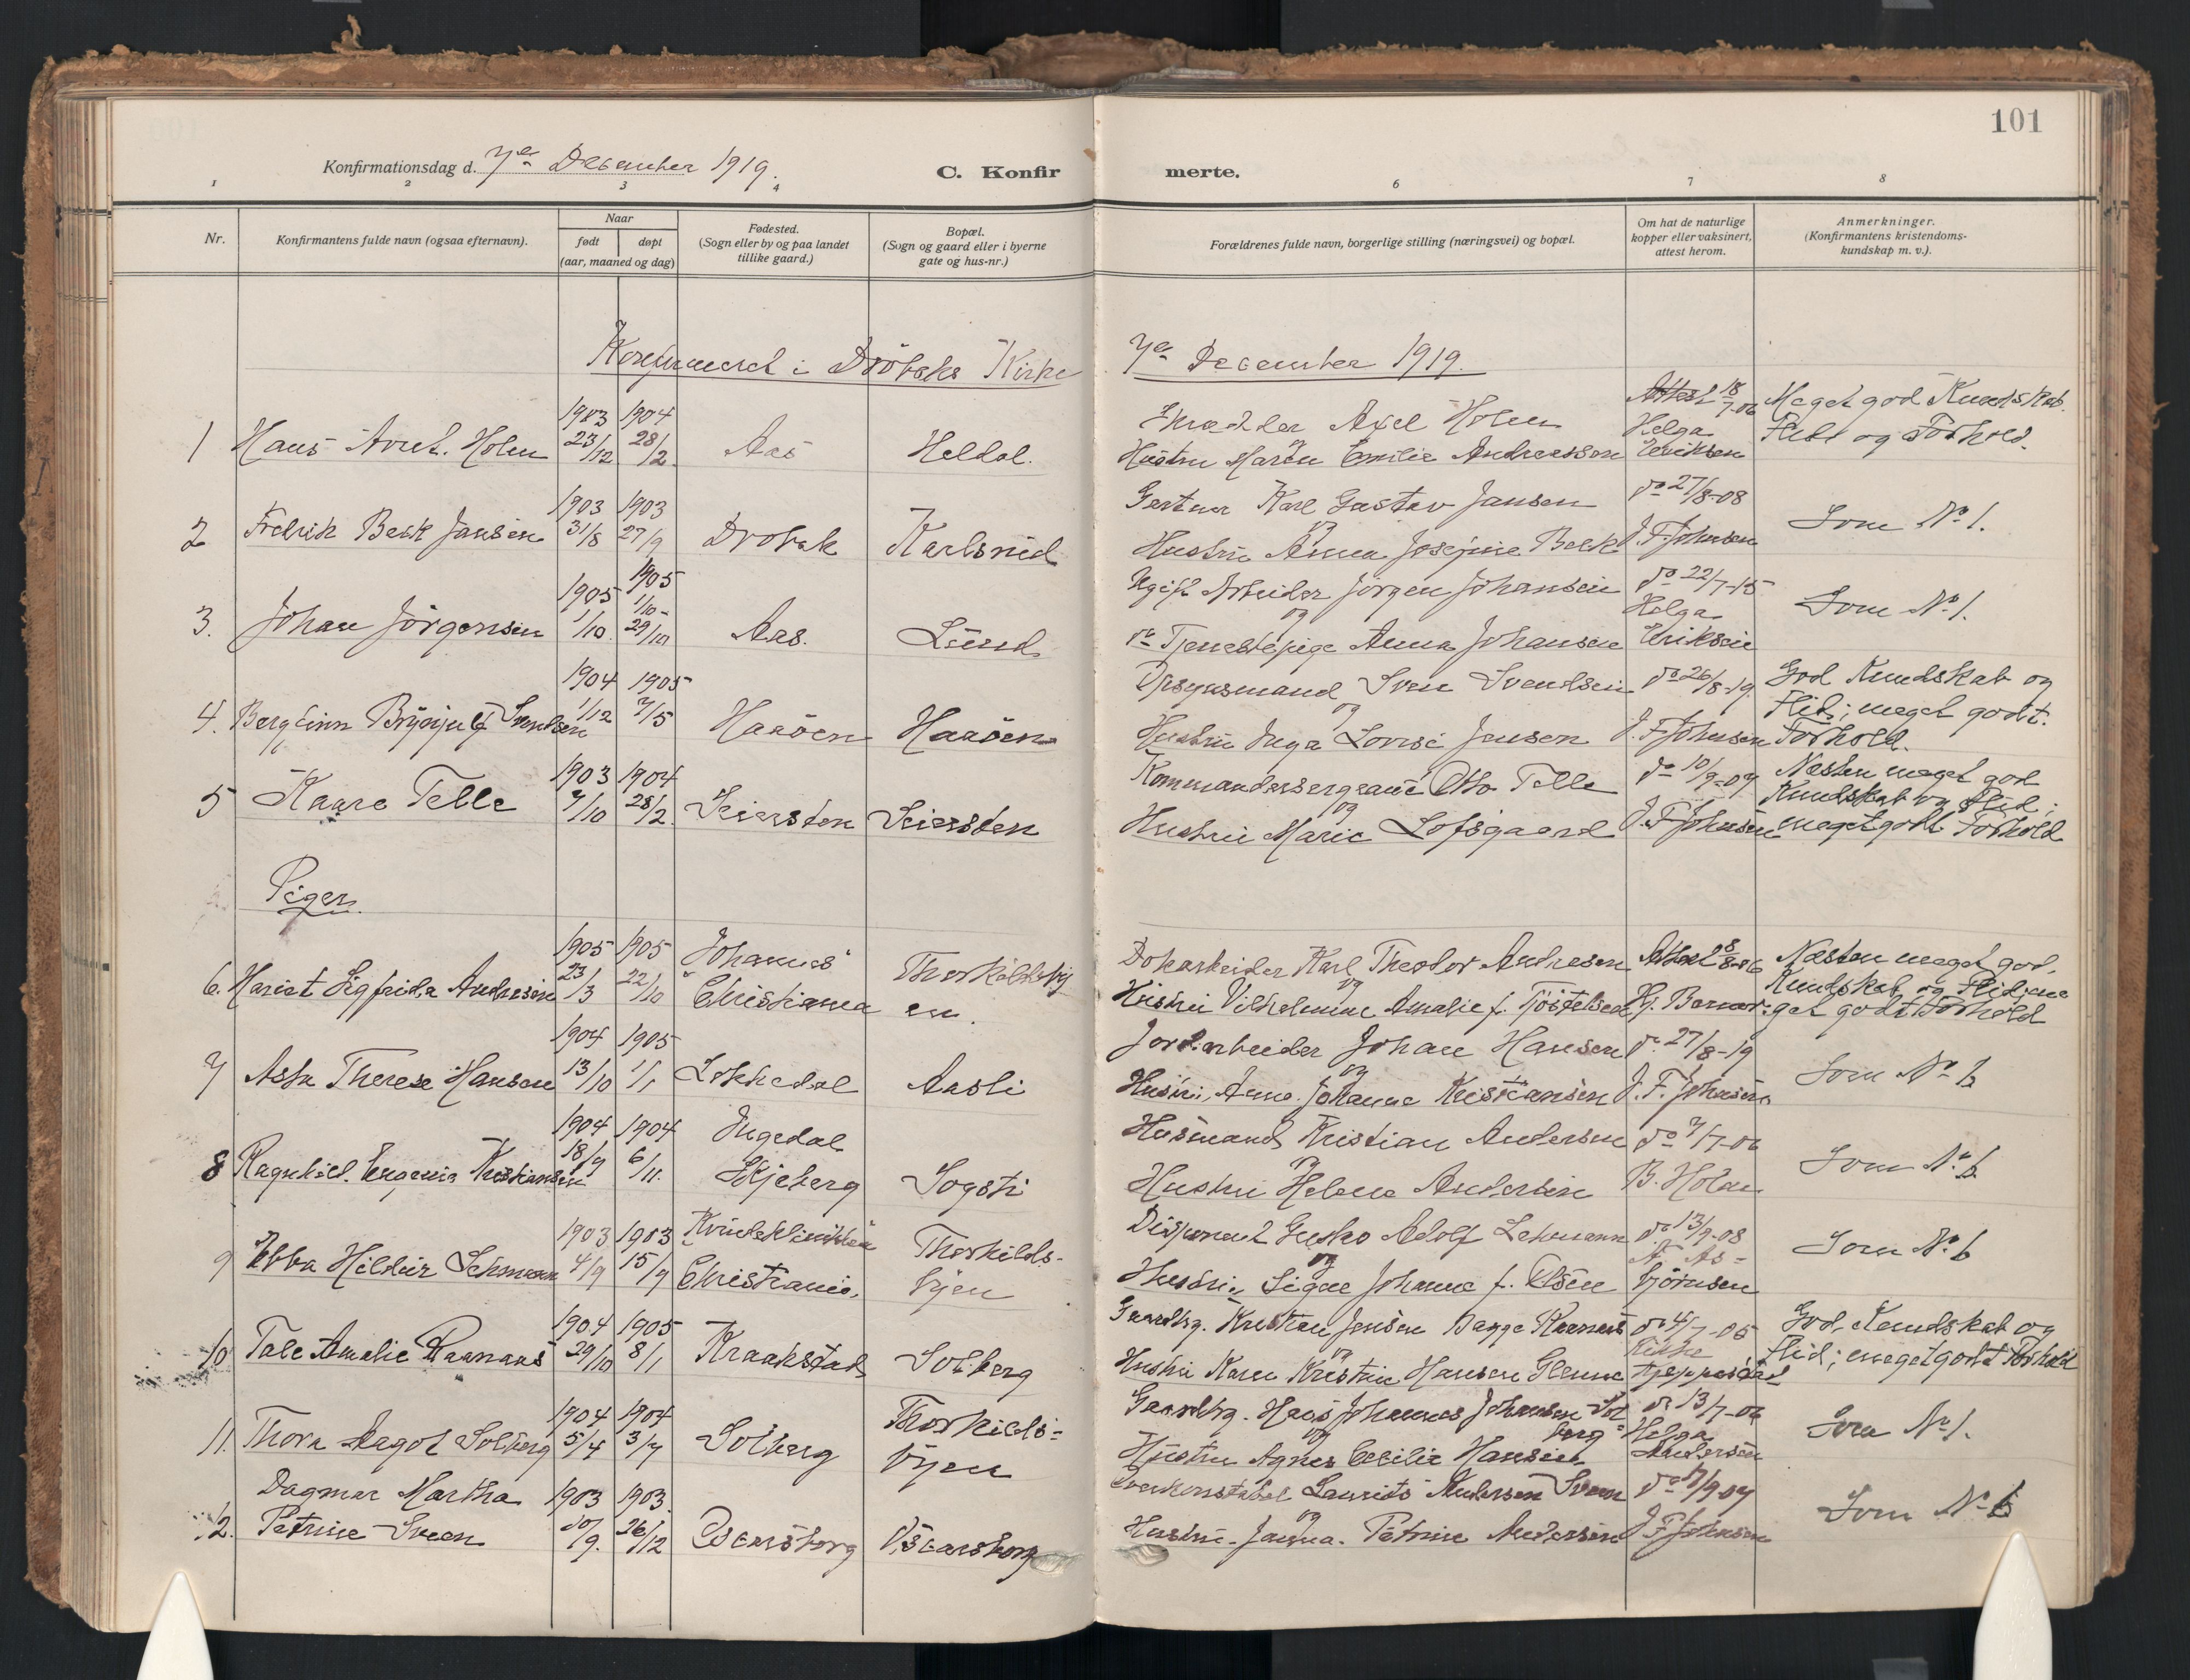 101
Konfirmationsdag d. 7de December 1919.
C. Konfirmerte.
1 2 3 4 6 7 8
Nr.
Konfirmantens fulde navn (ogsaa efternavn).
Naar
født døpt
(aar, maaned og dag)
Fødested.
(Sogn eller by og paa landet
tillike gaard.)
Bopæl.
(Sogn og gaard eller i byerne
gate og hus-nr.)
Forældrenes fulde navn, borgerlige stilling (næringsvei) og bopæl.
Om hat de naturlige
kopper eller vaksinert,
attest herom.
Anmerkninger.
(Konfirmantens kristendoms-
kundskap m. v.).
Konfirmered i Dröbaks Kirke 7de December 1919.
1903 1904 Attest 18/7-06 Meget god Kundskab.
1 Hans Arnt. Holen 23/12 28/2. Aas Heldal. Axel Holen Helga Flid og Forhold.
og
Hustru Maren Emilie Andreassen Eriksen
1903 1903 Gartner Karl Gustav Jansen do 27/8-08
2 Fredrik Beck Jansen 31/8 27/9 Drobak Karlsrud og Som No 1.
Hustru Anna Josefine Beck J. F. Johnsen
1905 1905 Ugift Arbeider Jörgen Johansen do 22/7-15
3. Johan Jörgensen 1/10. 1/10- 29/10 Aas. Lund og Helga Som No 1.
do Tjenestepige Anna Johansen Eriksen
1904 1905 Opsynsmand Sven Svendsen do 26/8-19. God Kundskab og
4. Bergfinn Brynjulf Svendsen 1/12 7/5 Haaöen Haaöen og Flid; meget godt.
Hustru Inga Lovise Jensen J. F. Johnsen Forhold.
1903 1904 Kommandersergeant Otto Telle do 10/9-09 Næsten meget god
5 Kaare Telle 7/10 28/2. Seiersten Seiersten og Kundskab og Flid;
Hustru Marie Lofsgaard J. F. Johnsen meget godt Forhold
Piger.
1905 1905 Johannes Karl Theodor Andresen Attest 8/8-06 Næsten meget god,
6. Sigfrida Andresen 23/3 22/10 Christiania Thorkildsby en. og Kundskab og Flid; me
Hustru Vilhelmine Amalie f. get godt Forhold
1904 1905 Jordarbeider Johan Hansen do 27/8-19
7 Asta Therese Hansen 13/10 1/1 Lökkedal Aasli og Som No 6
Hustru, Anna Johanne Kristiansen J. F. Johnsen
1904 1904 Ingedal Husmand Kristian Andersen do 7/7-06
8 Ragnhild. Eugenia Kristiansen 18/9 6/11. Skjeberg Sogsti og Som No 6
Hustru Helene Andersen B. Holen
1903 1903 Kvindeklinikken Disponent Adolf Lehmann do 13/9-08
9 Ebba Hildur Lehmann 4/9 15/9 Christiania. Thorkilds- og N. As- Som No 6
byen Hustru, Signe Johanne f. Olsen björnsen
1904 1905 Gaardbg. Kristian Jensen do 4/7-05 God, Kundskab og
10 Tale Amalie Raanaas 29/10 8/1 Kraakstad Solberg og Flid; meget godt Forhold
Hustru Karen Kristine Hansen Glenne
1904 1904 Thorkilds- Gaardbg. Hans Johannes Johansen Sol do 13/7-06
11. Thora Aagot Solberg 5/4 3/7 Solberg byen og berg Helga Som No 1.
Hustru Agnes Cecilie Hansen Andersen
Dagmar Martha 1903 1903. Laurits Andersen Sveen
12. Petrine Sveen 26/12 Oscarsborg Oscarsborg og Som No 6
Hustru. Petrine Andersen J. F. Johnsen